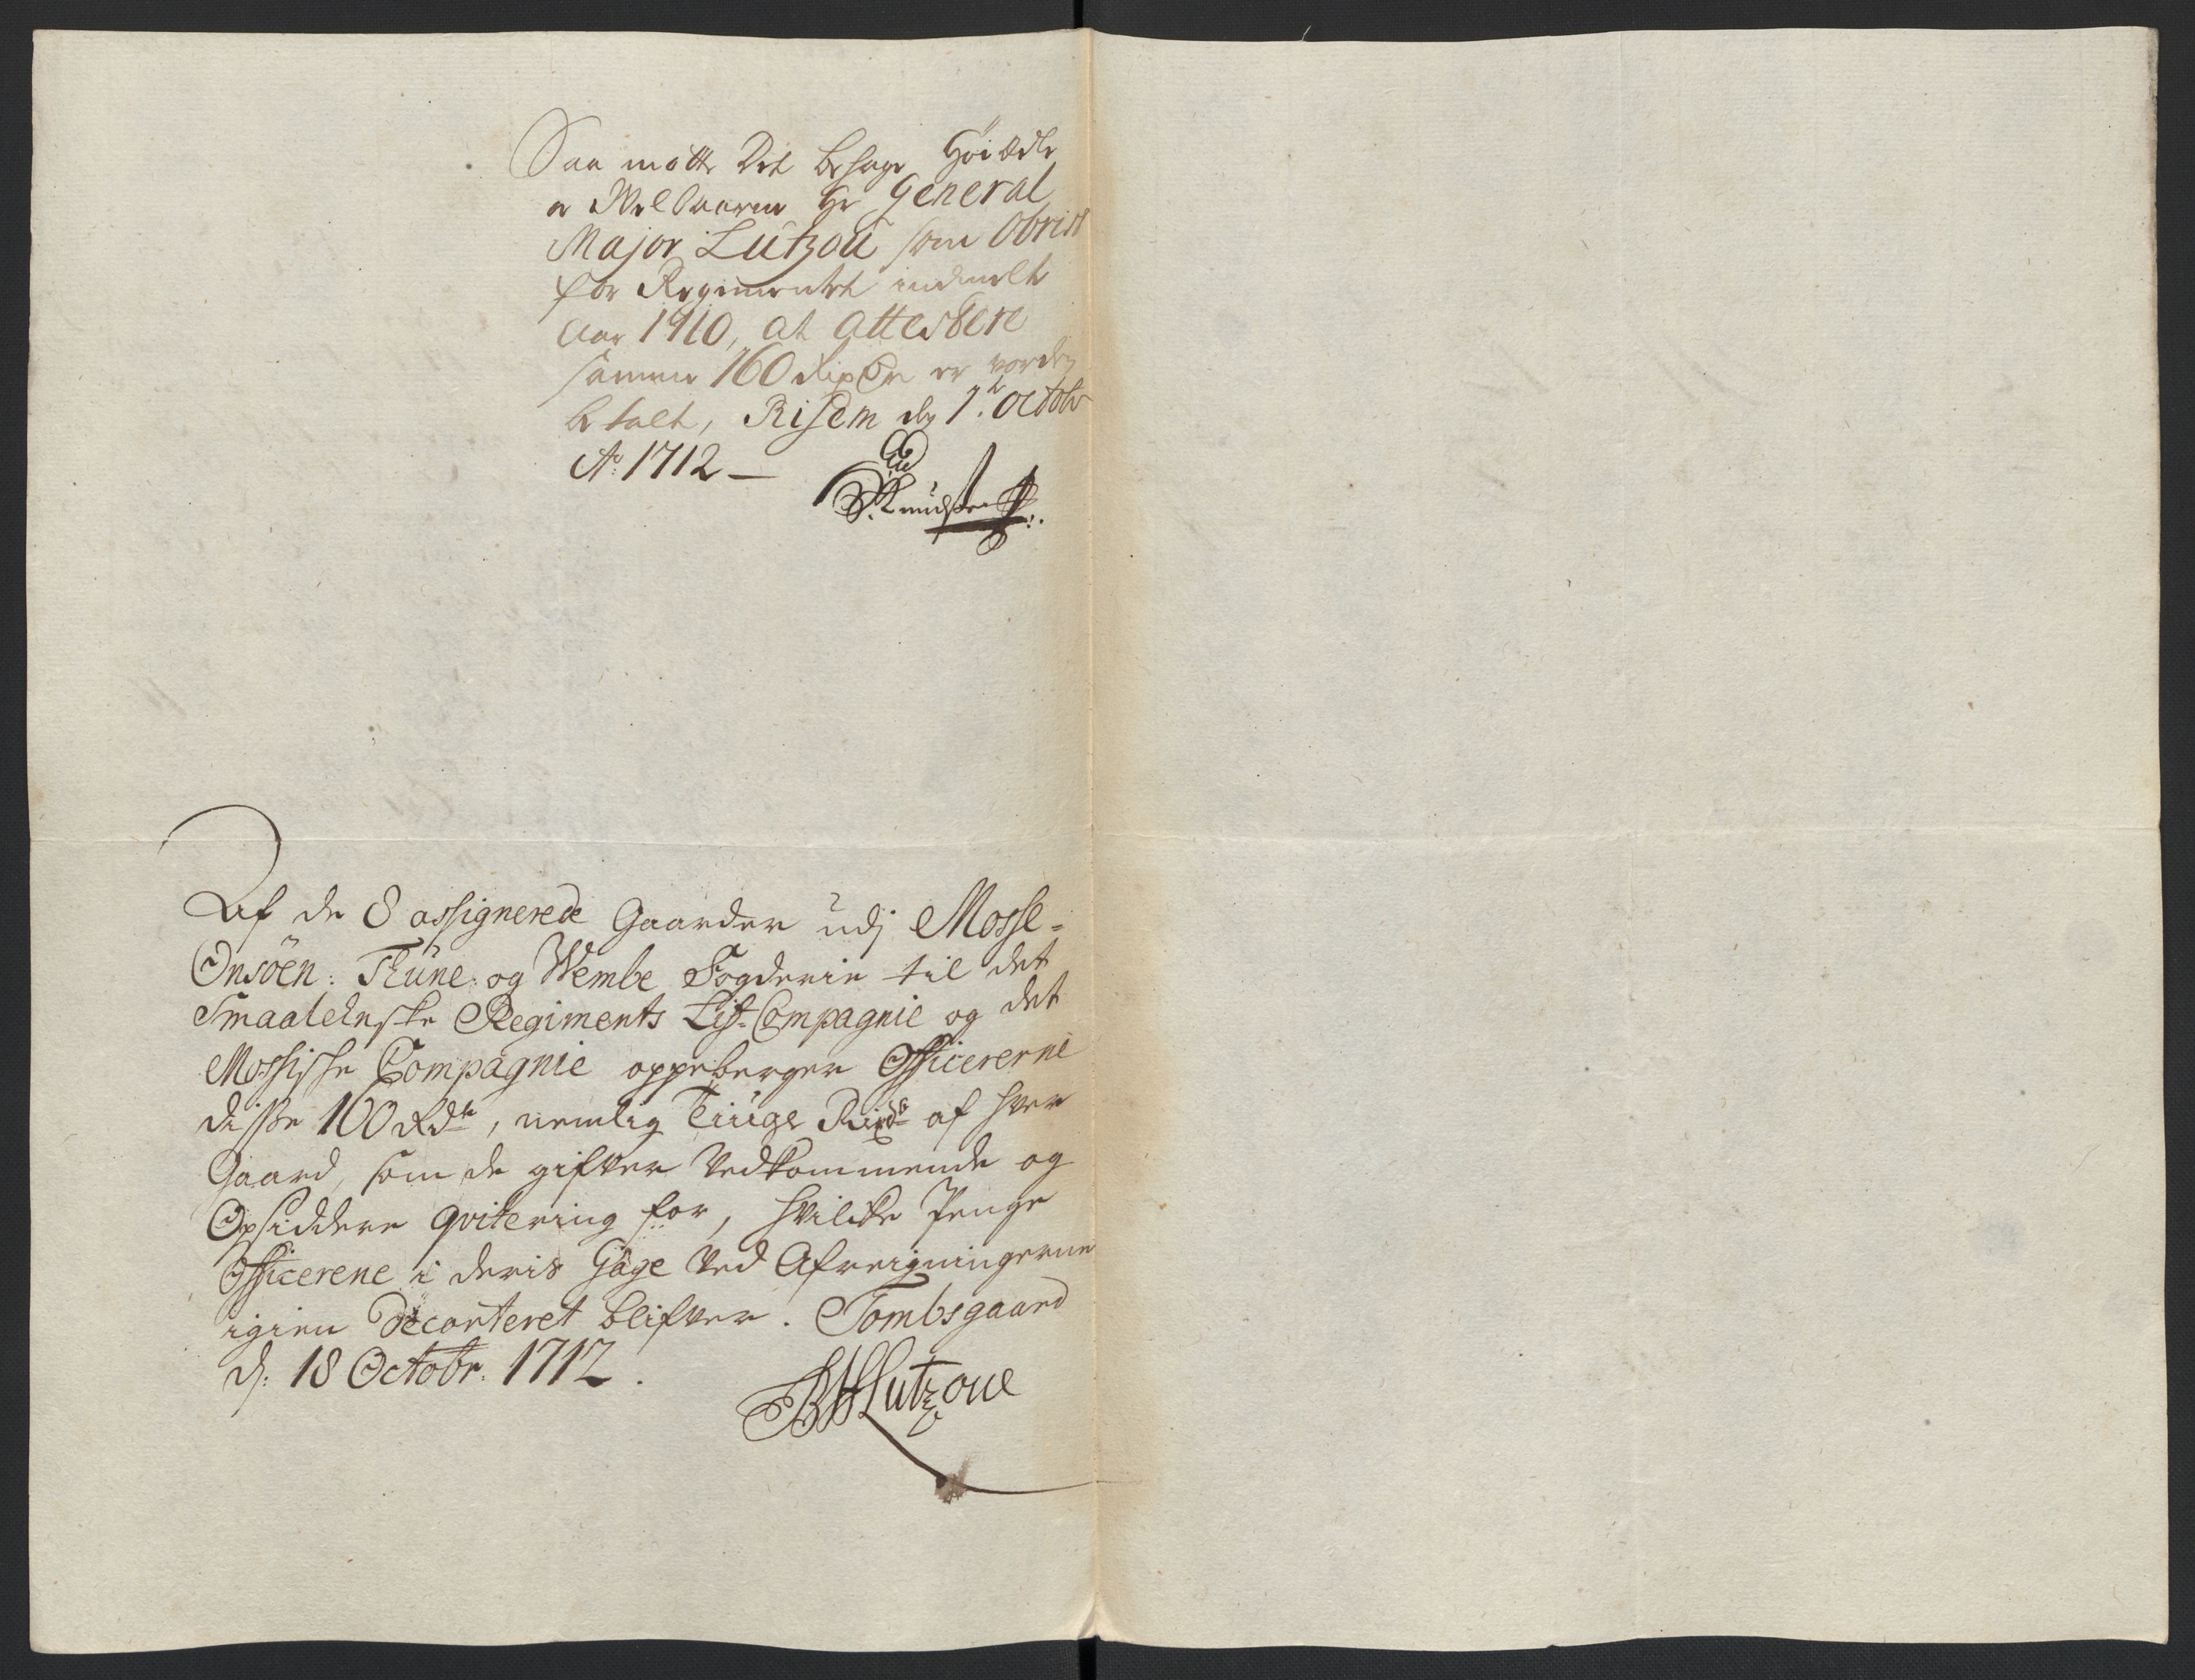 Saa mötte Det behage Höi Ædle
a Welbaarne Hr General
Major Lützou som Obrist
for Regimentet indmelte
Aar 1710, at attestere
samme 160 Rixdr er vorden
betalt, Risem den 1te Octobr
Ao: 1712 —
Knudsen
Af de 8 assignerede Gaarder udj Mosse-
Onsöen: Thüne: og Wembe Fogderie til det
Smaalehnske Regiments Lif-Compagnie og det
Mossische Compagnie oppeberger Officererne
disse 160 Rdr, nemlig Tiuge Rixdr af hver
Gaard, som de gifver Vedkommende og
Opsiddere qvitering for, hvilcke Penge
Officerene i deris Gage ved Afreigningerne
igien decorteret blifver. Tombsgaard
d: 18 Octobr: 1712.
BHLutzoue